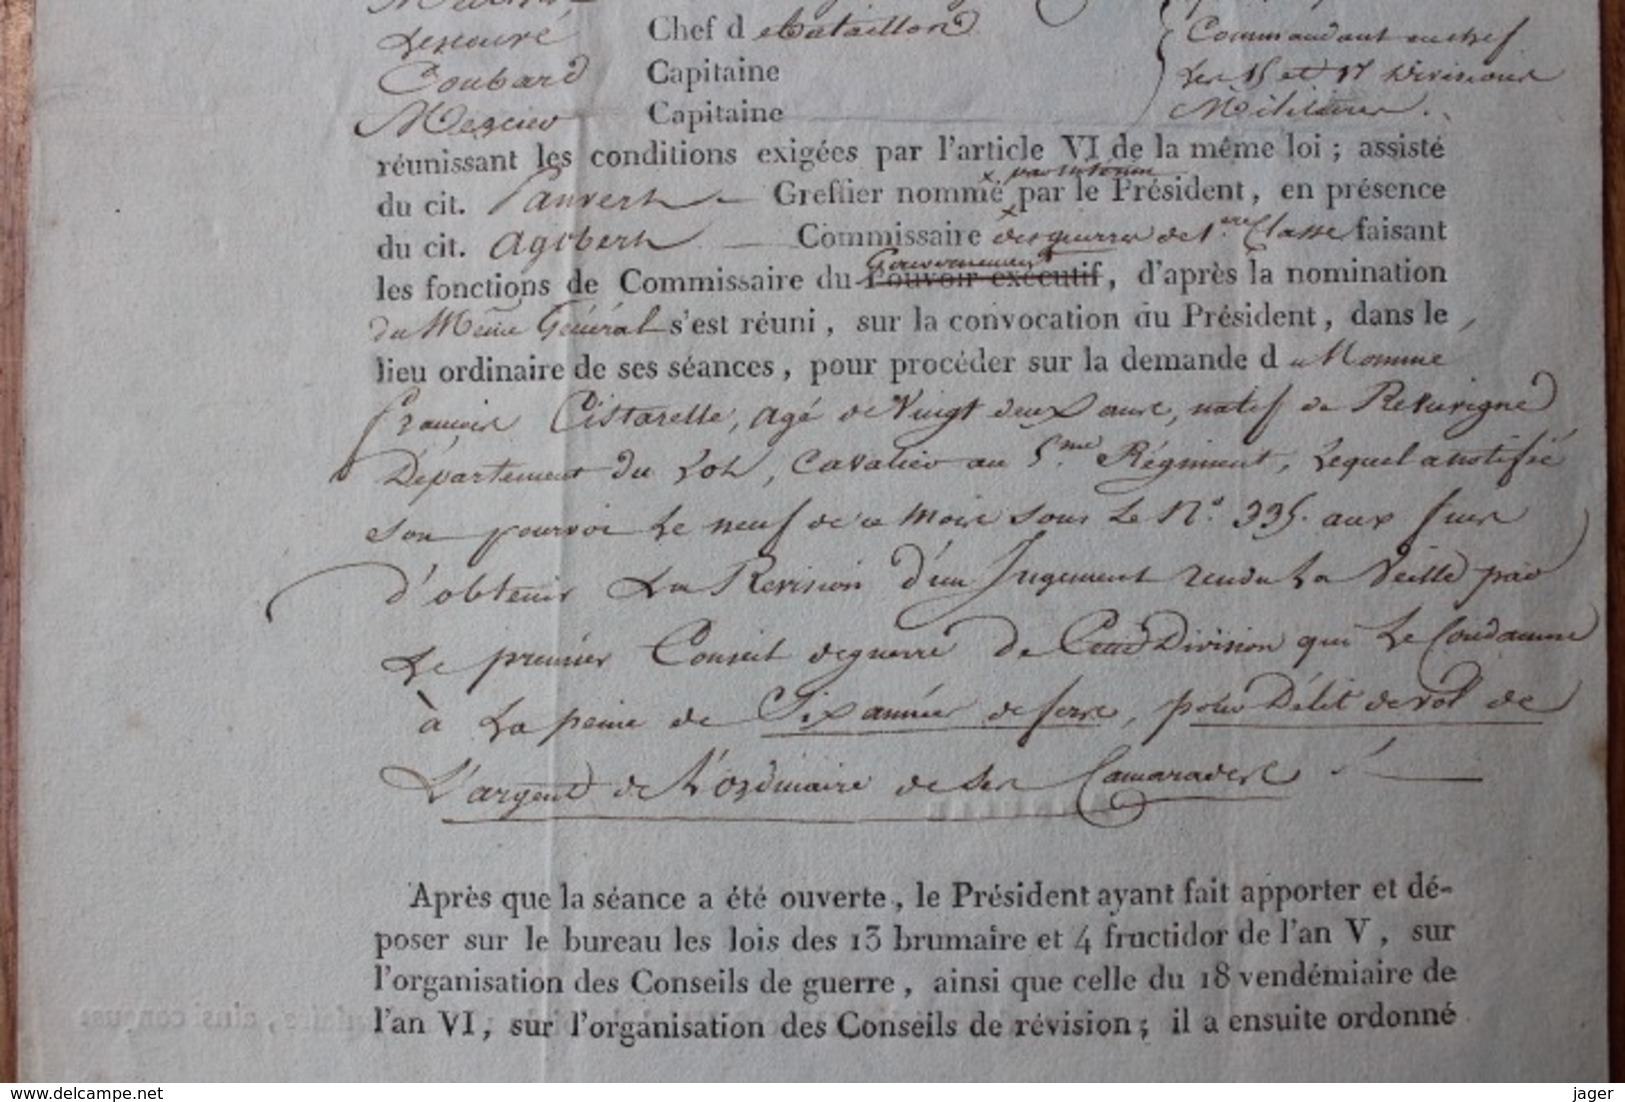 Lescuré Chef d e Bataillon Commandant en chef
Coubard Capitaine Les 15 et 17 Divisions
Mercier Capitaine Militaires.
réunissant les conditions exigées par l'article VI de la même loi ; assisté
par interim
du cit. Vauvert Greffier nommé par le Président, en présence
du cit. Agobert Commissaire des guerres de 1.ere Classe faisant
Gouvernement
les fonctions de Commissaire du Pouvoir exécutif, d'après la nomination
du Même Général s'est réuni, sur la convocation du Président, dans le
lieu ordinaire de ses séances, pour procéder sur la demande d u Nommé
François Cistarelle, agé de Vingt deux ans, natif de
Département du Lot, Cavalier au 5.me Régiment, Lequel a notifié
son pourvoi Le neuf de ce mois sous Le N.o 335. aux fins
d'obtenir La Revision d'un Jugement rendu La Veille par
Le premier Conseil de guerre de Cette Division qui Le Condamne
à La peine de Six années de fers, pour Délit de vol de
L'argent de L'ordinaire de ses Camarades
Après que la séance a été ouverte, le Président ayant fait apporter et dé-
poser sur le bureau les lois des 13 brumaire et 4 fructidor de l'an V, sur
l'organisation des Conseils de guerre, ainsi que celle du 18 vendémiaire de
l'an VI, sur l'organisation des Conseils de révision ; il a ensuite ordonné
www.delcampe.net
jager